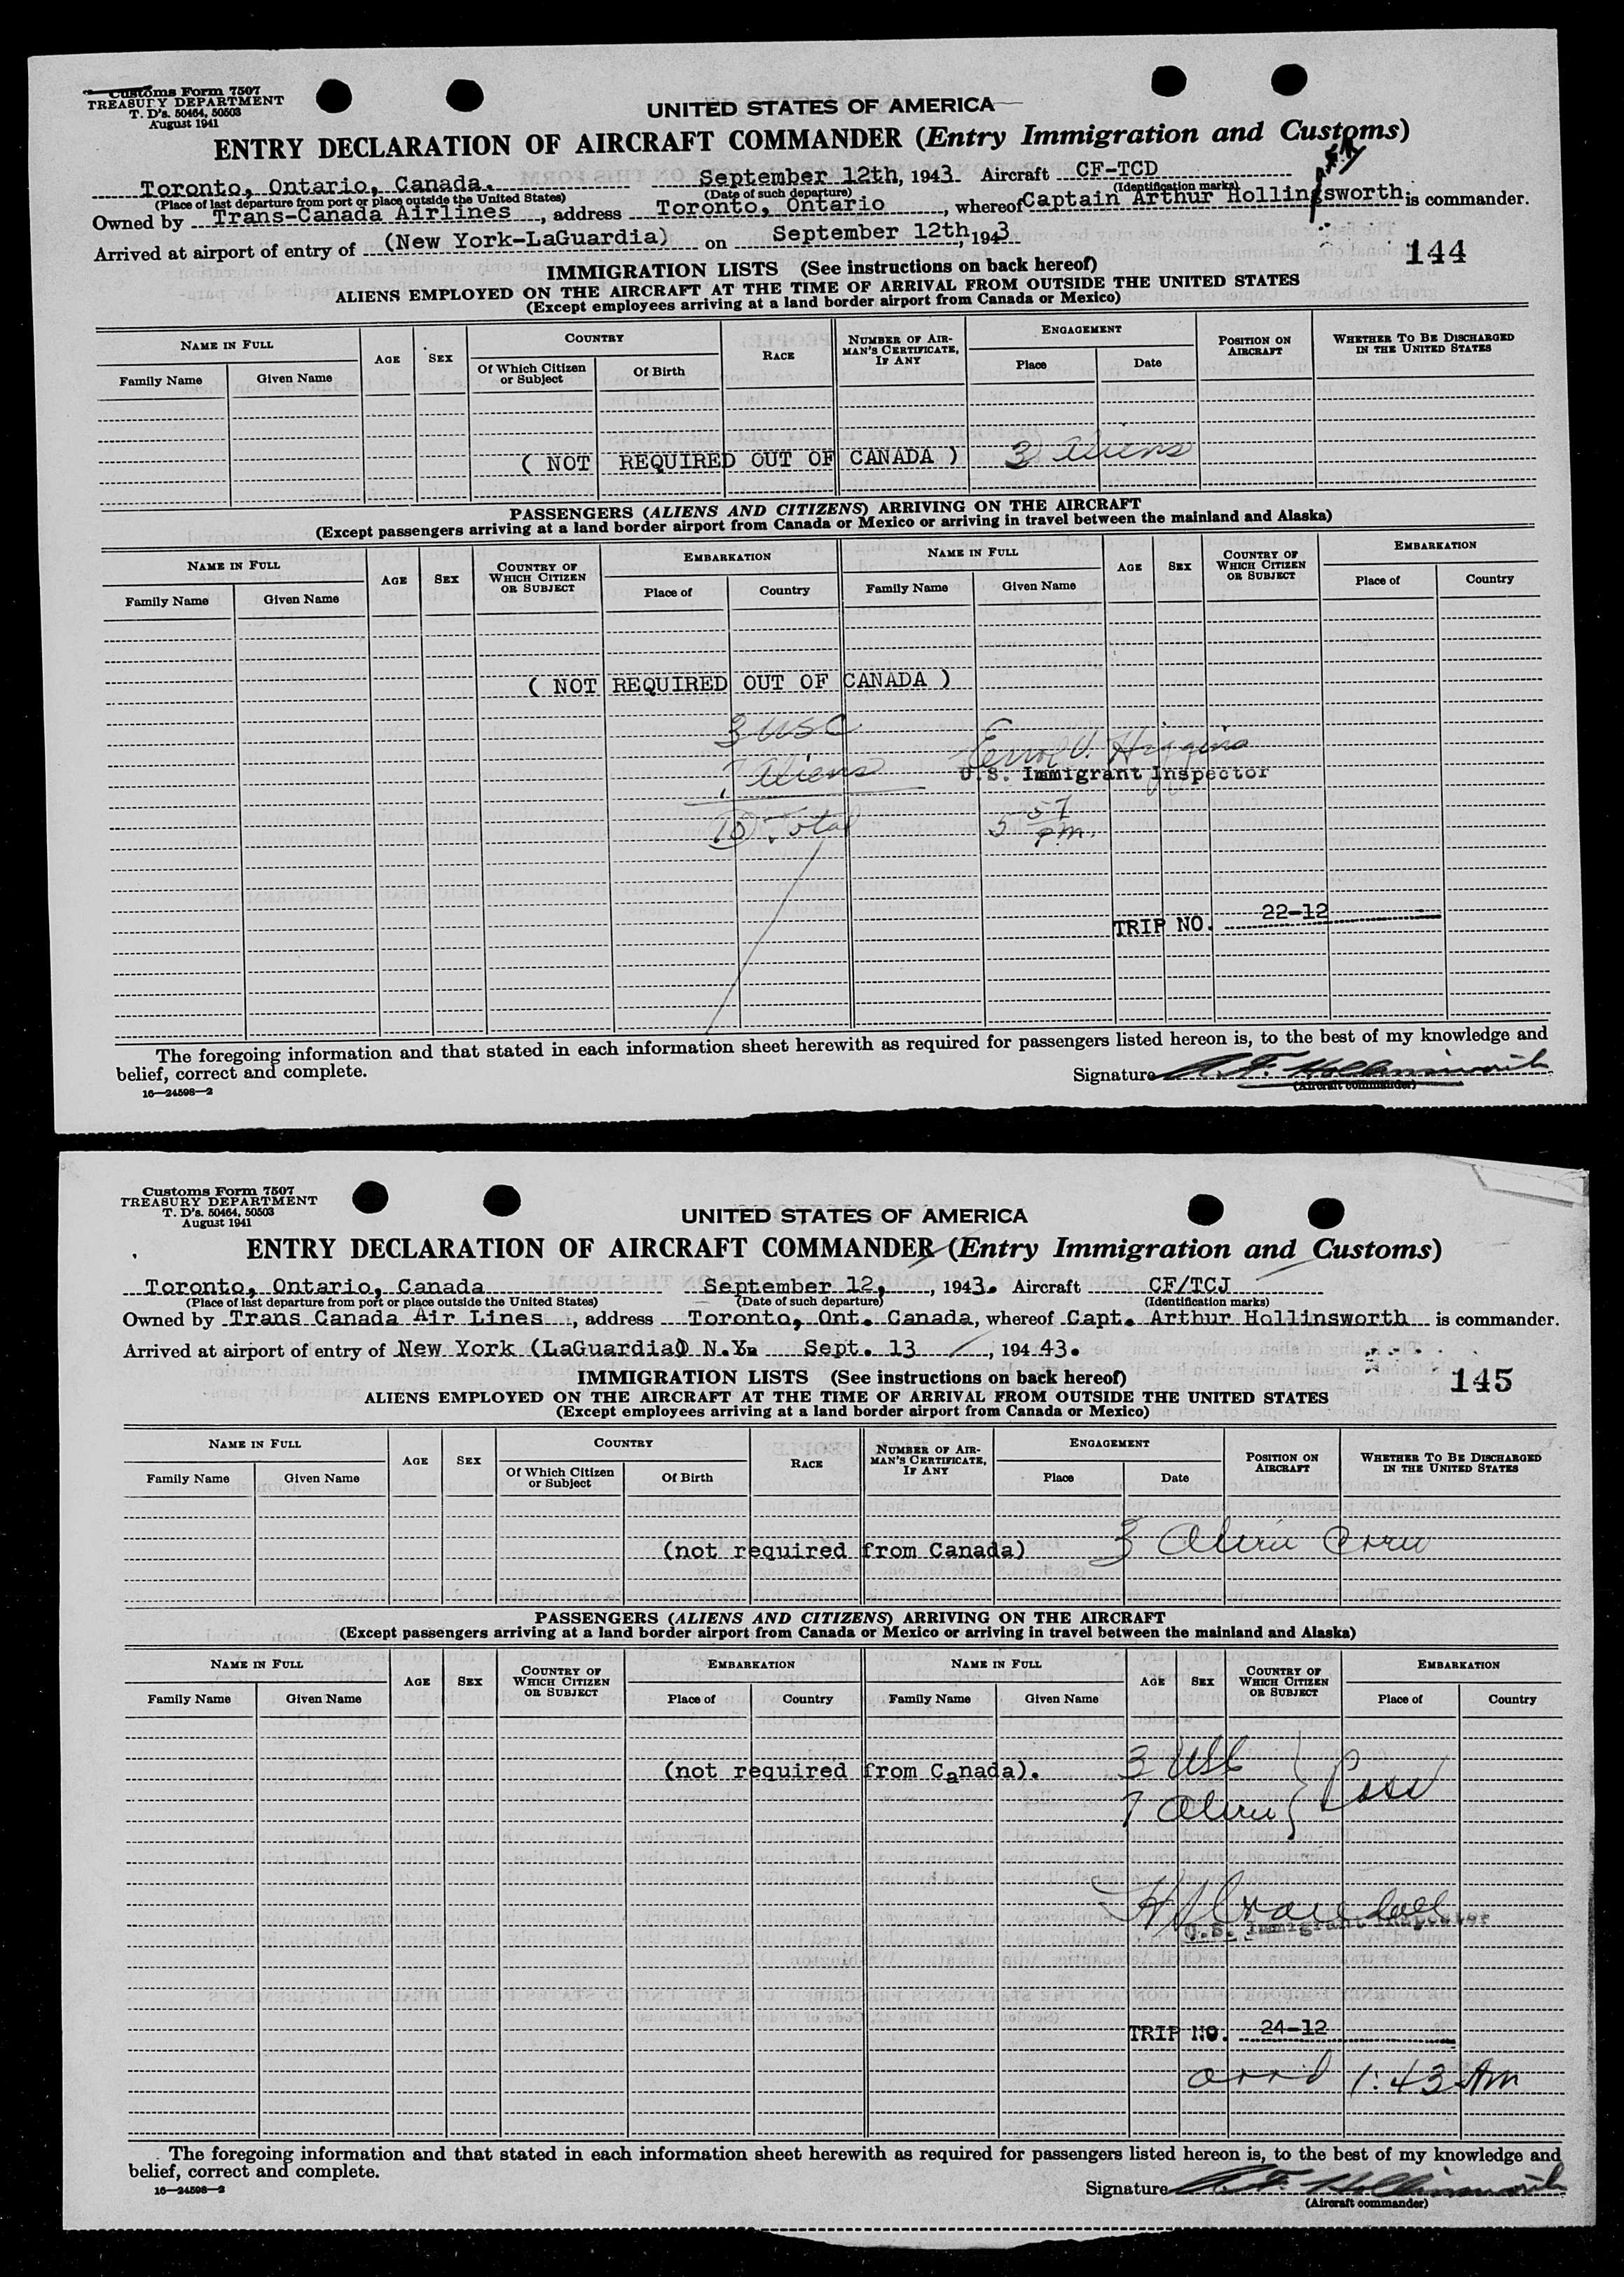 Customs Form 7507
TREASURY DEPARTMENT
T. D's. 50464, 50503
August 1941
UNITED STATES OF AMERICA
ENTRY DECLARATION OF AIRCRAFT COMMANDER (Entry Immigration and Customs)
Toronto, Ontario, Canada. September 12th, 1943 Aircraft CF-TCD
(Place of last departure from port or place outside the United States) (Date of such departure) (Identification marks)
Owned by Trans-Canada Airlines, address Toronto, Ontario, whereof Captain Arthur Hollingsworth is commander.
Arrived at airport of entry of (New York-LaGuardia) on September 12th, 1943
144
IMMIGRATION LISTS (See instructions on back hereof)
ALIENS EMPLOYED ON THE AIRCRAFT AT THE TIME OF ARRIVAL FROM OUTSIDE THE UNITED STATES
(Except employees arriving at a land border airport from Canada or Mexico)
NAME IN FULL AGE SEX COUNTRY RACE NUMBER OF AIRMAN'S CERTIFICATE, IF ANY ENGAGEMENT POSITION ON AIRCRAFT WHETHER TO BE DISCHARGED IN THE UNITED STATES
Family Name Given Name Of Which Citizen or Subject Of Birth Place Date
( NOT REQUIRED OUT OF CANADA ) 3 Aliens
PASSENGERS (ALIENS AND CITIZENS) ARRIVING ON THE AIRCRAFT
(Except passengers arriving at a land border airport from Canada or Mexico or arriving in travel between the mainland and Alaska)
NAME IN FULL AGE SEX COUNTRY OF WHICH CITIZEN OR SUBJECT EMBARKATION NAME IN FULL AGE SEX COUNTRY OF WHICH CITIZEN OR SUBJECT EMBARKATION
Family Name Given Name Place of Country Family Name Given Name Place of Country
( NOT REQUIRED OUT OF CANADA )
3 USC
7 Aliens
Errol V. Higgins
U.S. Immigrant Inspector
10 Total
5 57 pm.
TRIP NO. 22-12
The foregoing information and that stated in each information sheet herewith as required for passengers listed hereon is, to the best of my knowledge and
belief, correct and complete.
Signature A. F. Hollinsworth
(Aircraft commander)
16—24598—2
Customs Form 7507
TREASURY DEPARTMENT
T. D's. 50464, 50503
August 1941
UNITED STATES OF AMERICA
ENTRY DECLARATION OF AIRCRAFT COMMANDER (Entry Immigration and Customs)
Toronto, Ontario, Canada September 12, 1943. Aircraft CF/TCJ
(Place of last departure from port or place outside the United States) (Date of such departure) (Identification marks)
Owned by Trans Canada Air Lines, address Toronto, Ont. Canada, whereof Capt. Arthur Hollinsworth is commander.
Arrived at airport of entry of New York (LaGuardia) N.Y. Sept. 13, 194 43.
145
IMMIGRATION LISTS (See instructions on back hereof)
ALIENS EMPLOYED ON THE AIRCRAFT AT THE TIME OF ARRIVAL FROM OUTSIDE THE UNITED STATES
(Except employees arriving at a land border airport from Canada or Mexico)
NAME IN FULL AGE SEX COUNTRY RACE NUMBER OF AIRMAN'S CERTIFICATE, IF ANY ENGAGEMENT POSITION ON AIRCRAFT WHETHER TO BE DISCHARGED IN THE UNITED STATES
Family Name Given Name Of Which Citizen or Subject Of Birth Place Date
(not required from Canada) 3 Alien Crew
PASSENGERS (ALIENS AND CITIZENS) ARRIVING ON THE AIRCRAFT
(Except passengers arriving at a land border airport from Canada or Mexico or arriving in travel between the mainland and Alaska)
NAME IN FULL AGE SEX COUNTRY OF WHICH CITIZEN OR SUBJECT EMBARKATION NAME IN FULL AGE SEX COUNTRY OF WHICH CITIZEN OR SUBJECT EMBARKATION
Family Name Given Name Place of Country Family Name Given Name Place of Country
(not required from Canada). 3 USC
7 Alien } Pass
U.S. Immigrant Inspector
TRIP NO. 24-12
arrd 1:43 Am
The foregoing information and that stated in each information sheet herewith as required for passengers listed hereon is, to the best of my knowledge and
belief, correct and complete.
Signature A. F. Hollinsworth
(Aircraft commander)
16—24598—2